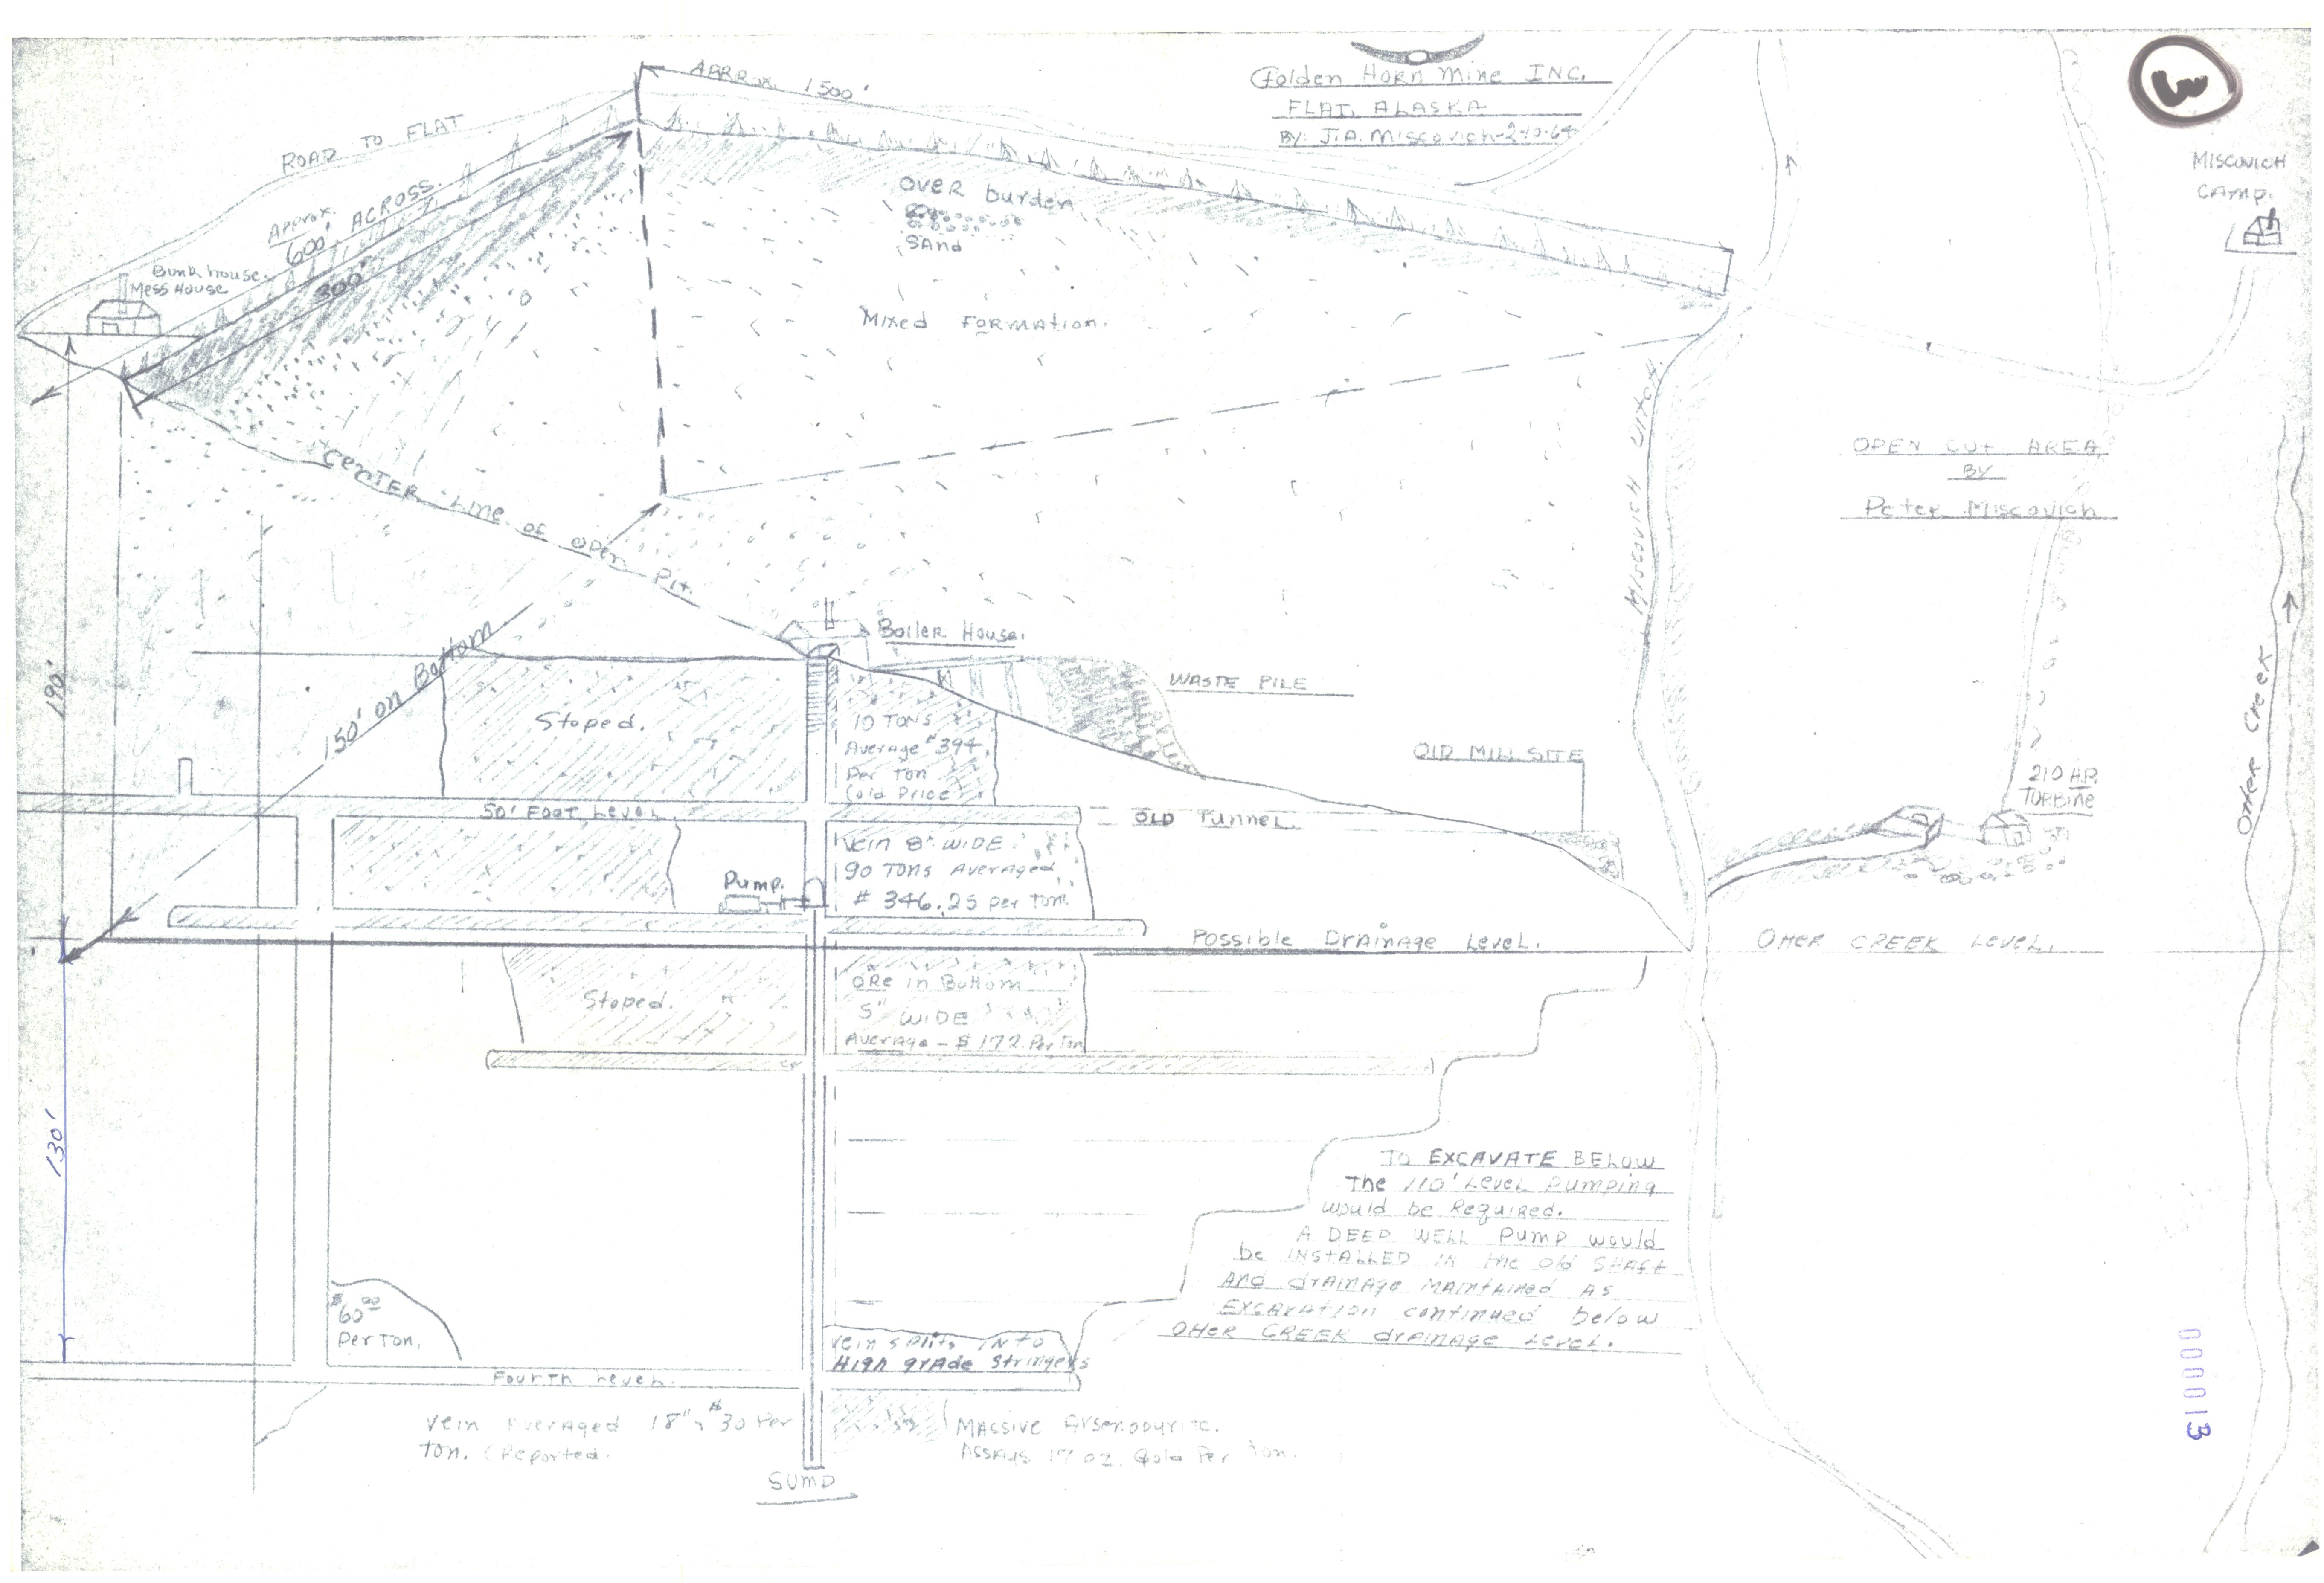 Golden Horn Mine INC.
FLAT, ALASKA
BY: J.A. Miscovich-2-10-64
W
MISCOVICH
CAMP.
APPROX. 1500'
ROAD TO FLAT
Approx.
600' ACROSS.
300'
Bunk house.
Mess House
Over burden
Sand
Mixed Formation.
CENTER Line of open Pit.
MISCOVICH DITCH.
OPEN CUT AREA
BY
Peter Miscovich
190'
150' on Bottom
Boiler House.
WASTE PILE
Stoped.
10 TONS
Average $394.
Per Ton
(old Price)
OLD MILL SITE
210 H.P.
TURBINE
Otter Creek
50' Foot Level
OLD Tunnel.
Vein 8" WIDE
90 Tons Averaged
# 346.25 per Ton.
Pump.
Possible Drainage Level.
OTTER CREEK LEVEL.
Stoped.
ORe in Bottom
5" WIDE
Average - $ 172. Per Ton
130'
To EXCAVATE BELOW
The 110' Level Pumping
would be Required.
A DEEP WELL Pump would
be INSTALLED IN the old SHAFT
And drainage MAINTAINED AS
EXCAVATION continued below
OTTER CREEK drainage Level.
$60.00
Per Ton.
Vein splits INto
High grade Stringers
Fourth Level.
Vein Averaged 18" $30 Per
ton. (Reported.
MASSIVE Arsenopyrite.
Assays 17 oz. Gold Per Ton.
SUMP
000013